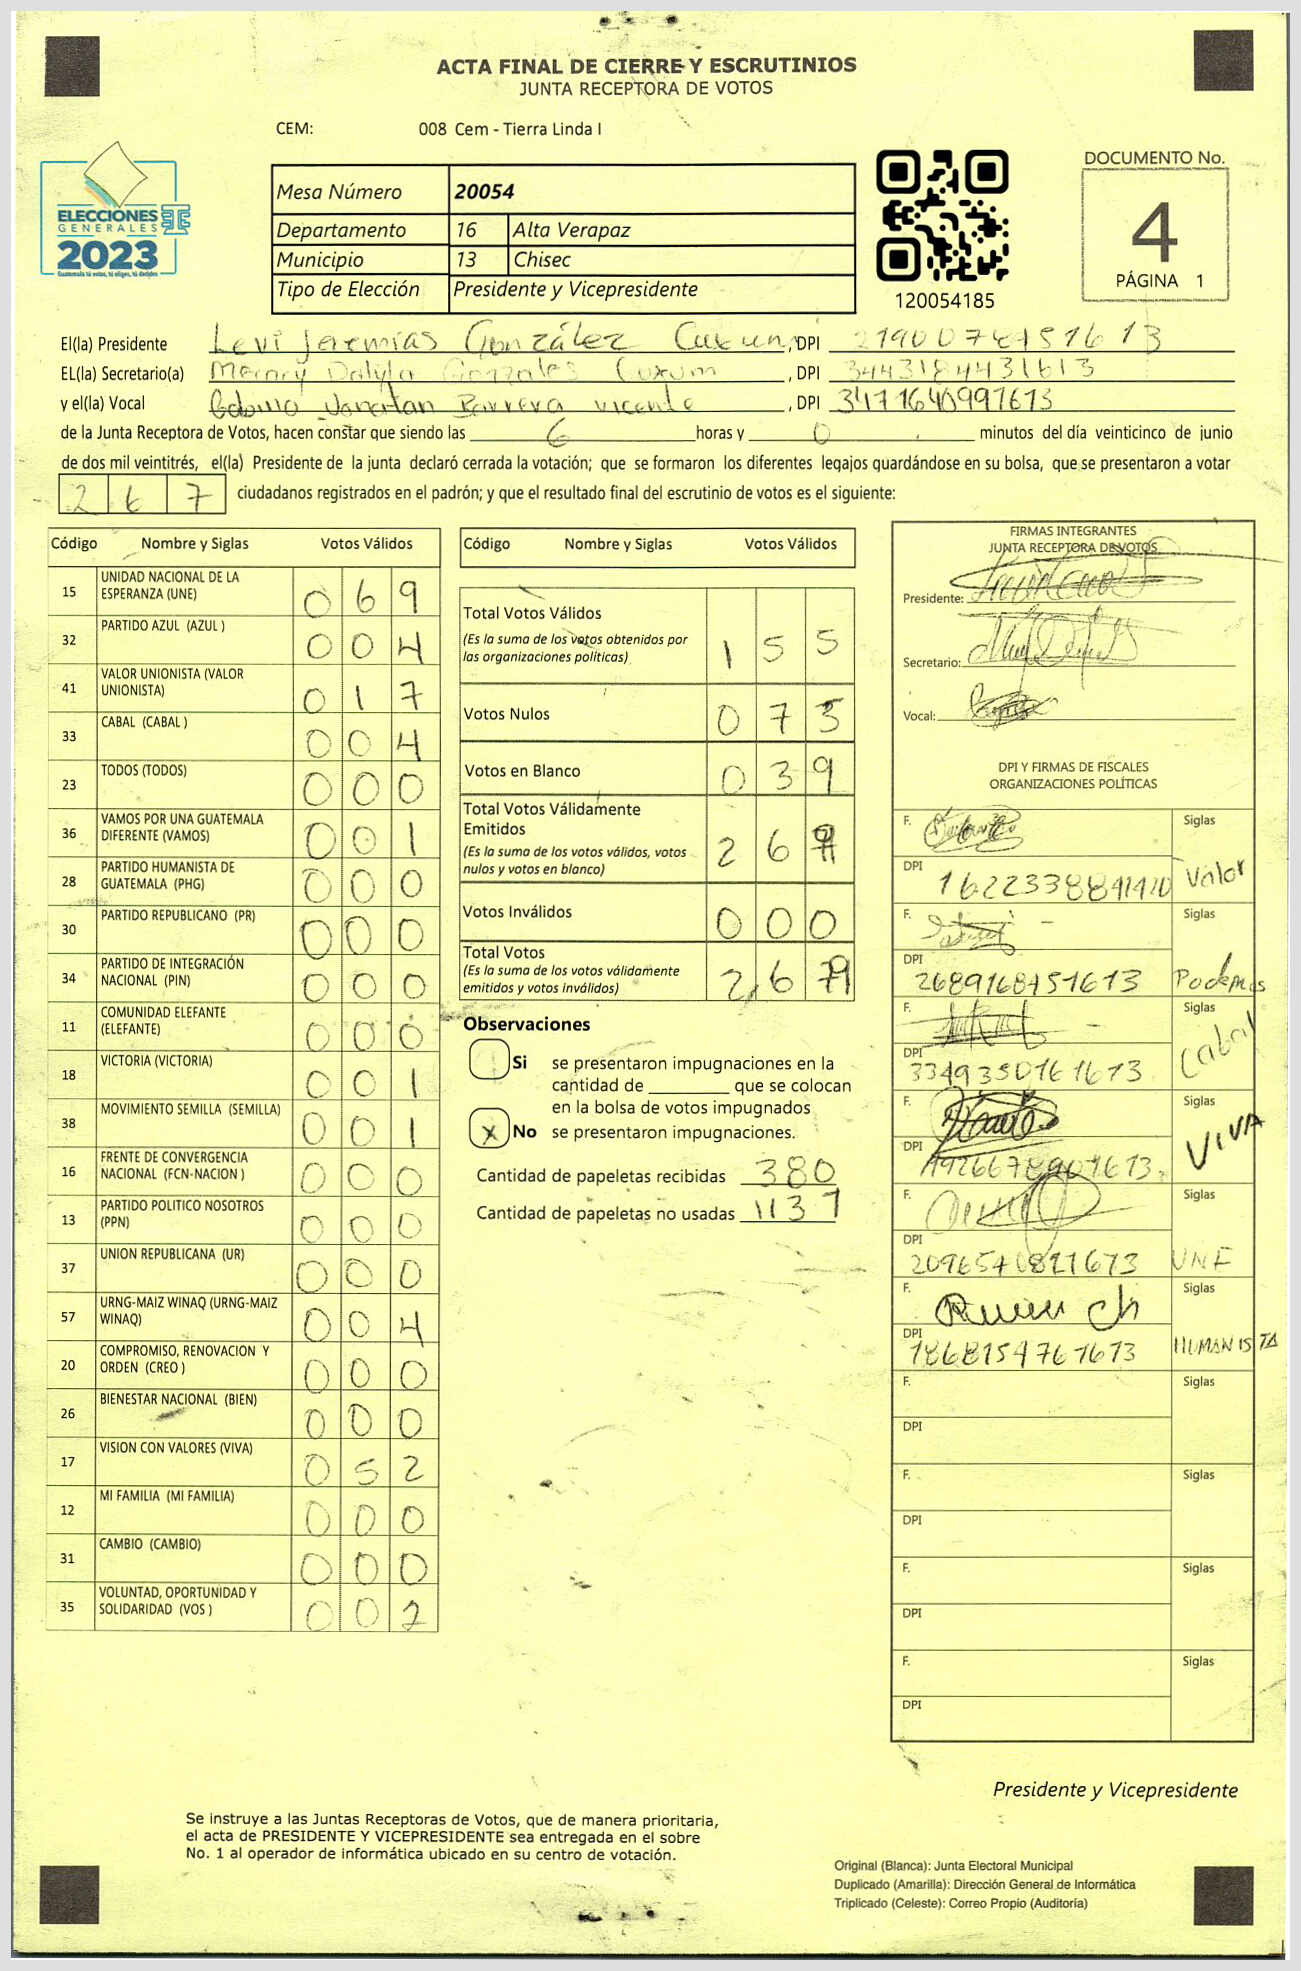 ACTA FINAL DE CIERRE Y ESCRUTINIOS
JUNTA RECEPTORA DE VOTOS
CEM: 008 Cem - Tierra Linda I
ELECCIONES
GENERALES
2023
Guatemala tú votas, tú eliges, tú decides
Mesa Número 20054
Departamento 16 Alta Verapaz
Municipio 13 Chisec
Tipo de Elección Presidente y Vicepresidente
120054185
DOCUMENTO No.
4
PÁGINA 1
El(la) Presidente Levi Jeremías González Cuxun, DPI
EL(la) Secretario(a) Dalyla Gonzales Cuxum, DPI 3443184431613
y el(la) Vocal Jonatan Barrera Vicente, DPI 3471640991613
de la Junta Receptora de Votos, hacen constar que siendo las 6 horas y 0 minutos del día veinticinco de junio
de dos mil veintitrés, el(la) Presidente de la junta declaró cerrada la votación; que se formaron los diferentes legajos guardándose en su bolsa, que se presentaron a votar
2 6 7 ciudadanos registrados en el padrón; y que el resultado final del escrutinio de votos es el siguiente:
Código Nombre y Siglas Votos Válidos
15 UNIDAD NACIONAL DE LA ESPERANZA (UNE) 0 6 9
32 PARTIDO AZUL (AZUL ) 0 0 4
41 VALOR UNIONISTA (VALOR UNIONISTA) 0 1 7
33 CABAL (CABAL ) 0 0 4
23 TODOS (TODOS) 0 0 0
36 VAMOS POR UNA GUATEMALA DIFERENTE (VAMOS) 0 0 1
28 PARTIDO HUMANISTA DE GUATEMALA (PHG) 0 0 0
30 PARTIDO REPUBLICANO (PR) 0 0 0
34 PARTIDO DE INTEGRACIÓN NACIONAL (PIN) 0 0 0
11 COMUNIDAD ELEFANTE (ELEFANTE) 0 0 0
18 VICTORIA (VICTORIA) 0 0 1
38 MOVIMIENTO SEMILLA (SEMILLA) 0 0 1
16 FRENTE DE CONVERGENCIA NACIONAL (FCN-NACION ) 0 0 0
13 PARTIDO POLITICO NOSOTROS (PPN) 0 0 0
37 UNION REPUBLICANA (UR) 0 0 0
57 URNG-MAIZ WINAQ (URNG-MAIZ WINAQ) 0 0 4
20 COMPROMISO, RENOVACION Y ORDEN (CREO ) 0 0 0
26 BIENESTAR NACIONAL (BIEN) 0 0 0
17 VISION CON VALORES (VIVA) 0 5 2
12 MI FAMILIA (MI FAMILIA) 0 0 0
31 CAMBIO (CAMBIO) 0 0 0
35 VOLUNTAD, OPORTUNIDAD Y SOLIDARIDAD (VOS ) 0 0 2
Código Nombre y Siglas Votos Válidos
Total Votos Válidos
(Es la suma de los votos obtenidos por
las organizaciones políticas) 1 5 5
Votos Nulos 0 7 3
Votos en Blanco 0 3 9
Total Votos Válidamente
Emitidos
(Es la suma de los votos válidos, votos
nulos y votos en blanco) 2 6
Votos Inválidos 0 0 0
Total Votos
(Es la suma de los votos válidamente
emitidos y votos inválidos) 2 6
Observaciones
Si se presentaron impugnaciones en la
cantidad de ________ que se colocan
en la bolsa de votos impugnados
X No se presentaron impugnaciones.
Cantidad de papeletas recibidas 380
Cantidad de papeletas no usadas
FIRMAS INTEGRANTES
JUNTA RECEPTORA DE VOTOS
Presidente:
Secretario:
Vocal:
DPI Y FIRMAS DE FISCALES
ORGANIZACIONES POLÍTICAS
F. Siglas
DPI Valor
F. Siglas
DPI 2689168451613 Podemos
F. Siglas
DPI 3349350161613 Cabal
F. Siglas
DPI 1926678901613 VIVA
F. Siglas
DPI UNE
F. Siglas
DPI 1868154761613 HUMANISTA
F. Siglas
DPI
F. Siglas
DPI
F. Siglas
DPI
F. Siglas
DPI
Presidente y Vicepresidente
Se instruye a las Juntas Receptoras de Votos, que de manera prioritaria,
el acta de PRESIDENTE Y VICEPRESIDENTE sea entregada en el sobre
No. 1 al operador de informática ubicado en su centro de votación.
Original (Blanca): Junta Electoral Municipal
Duplicado (Amarilla): Dirección General de Informática
Triplicado (Celeste): Correo Propio (Auditoría)